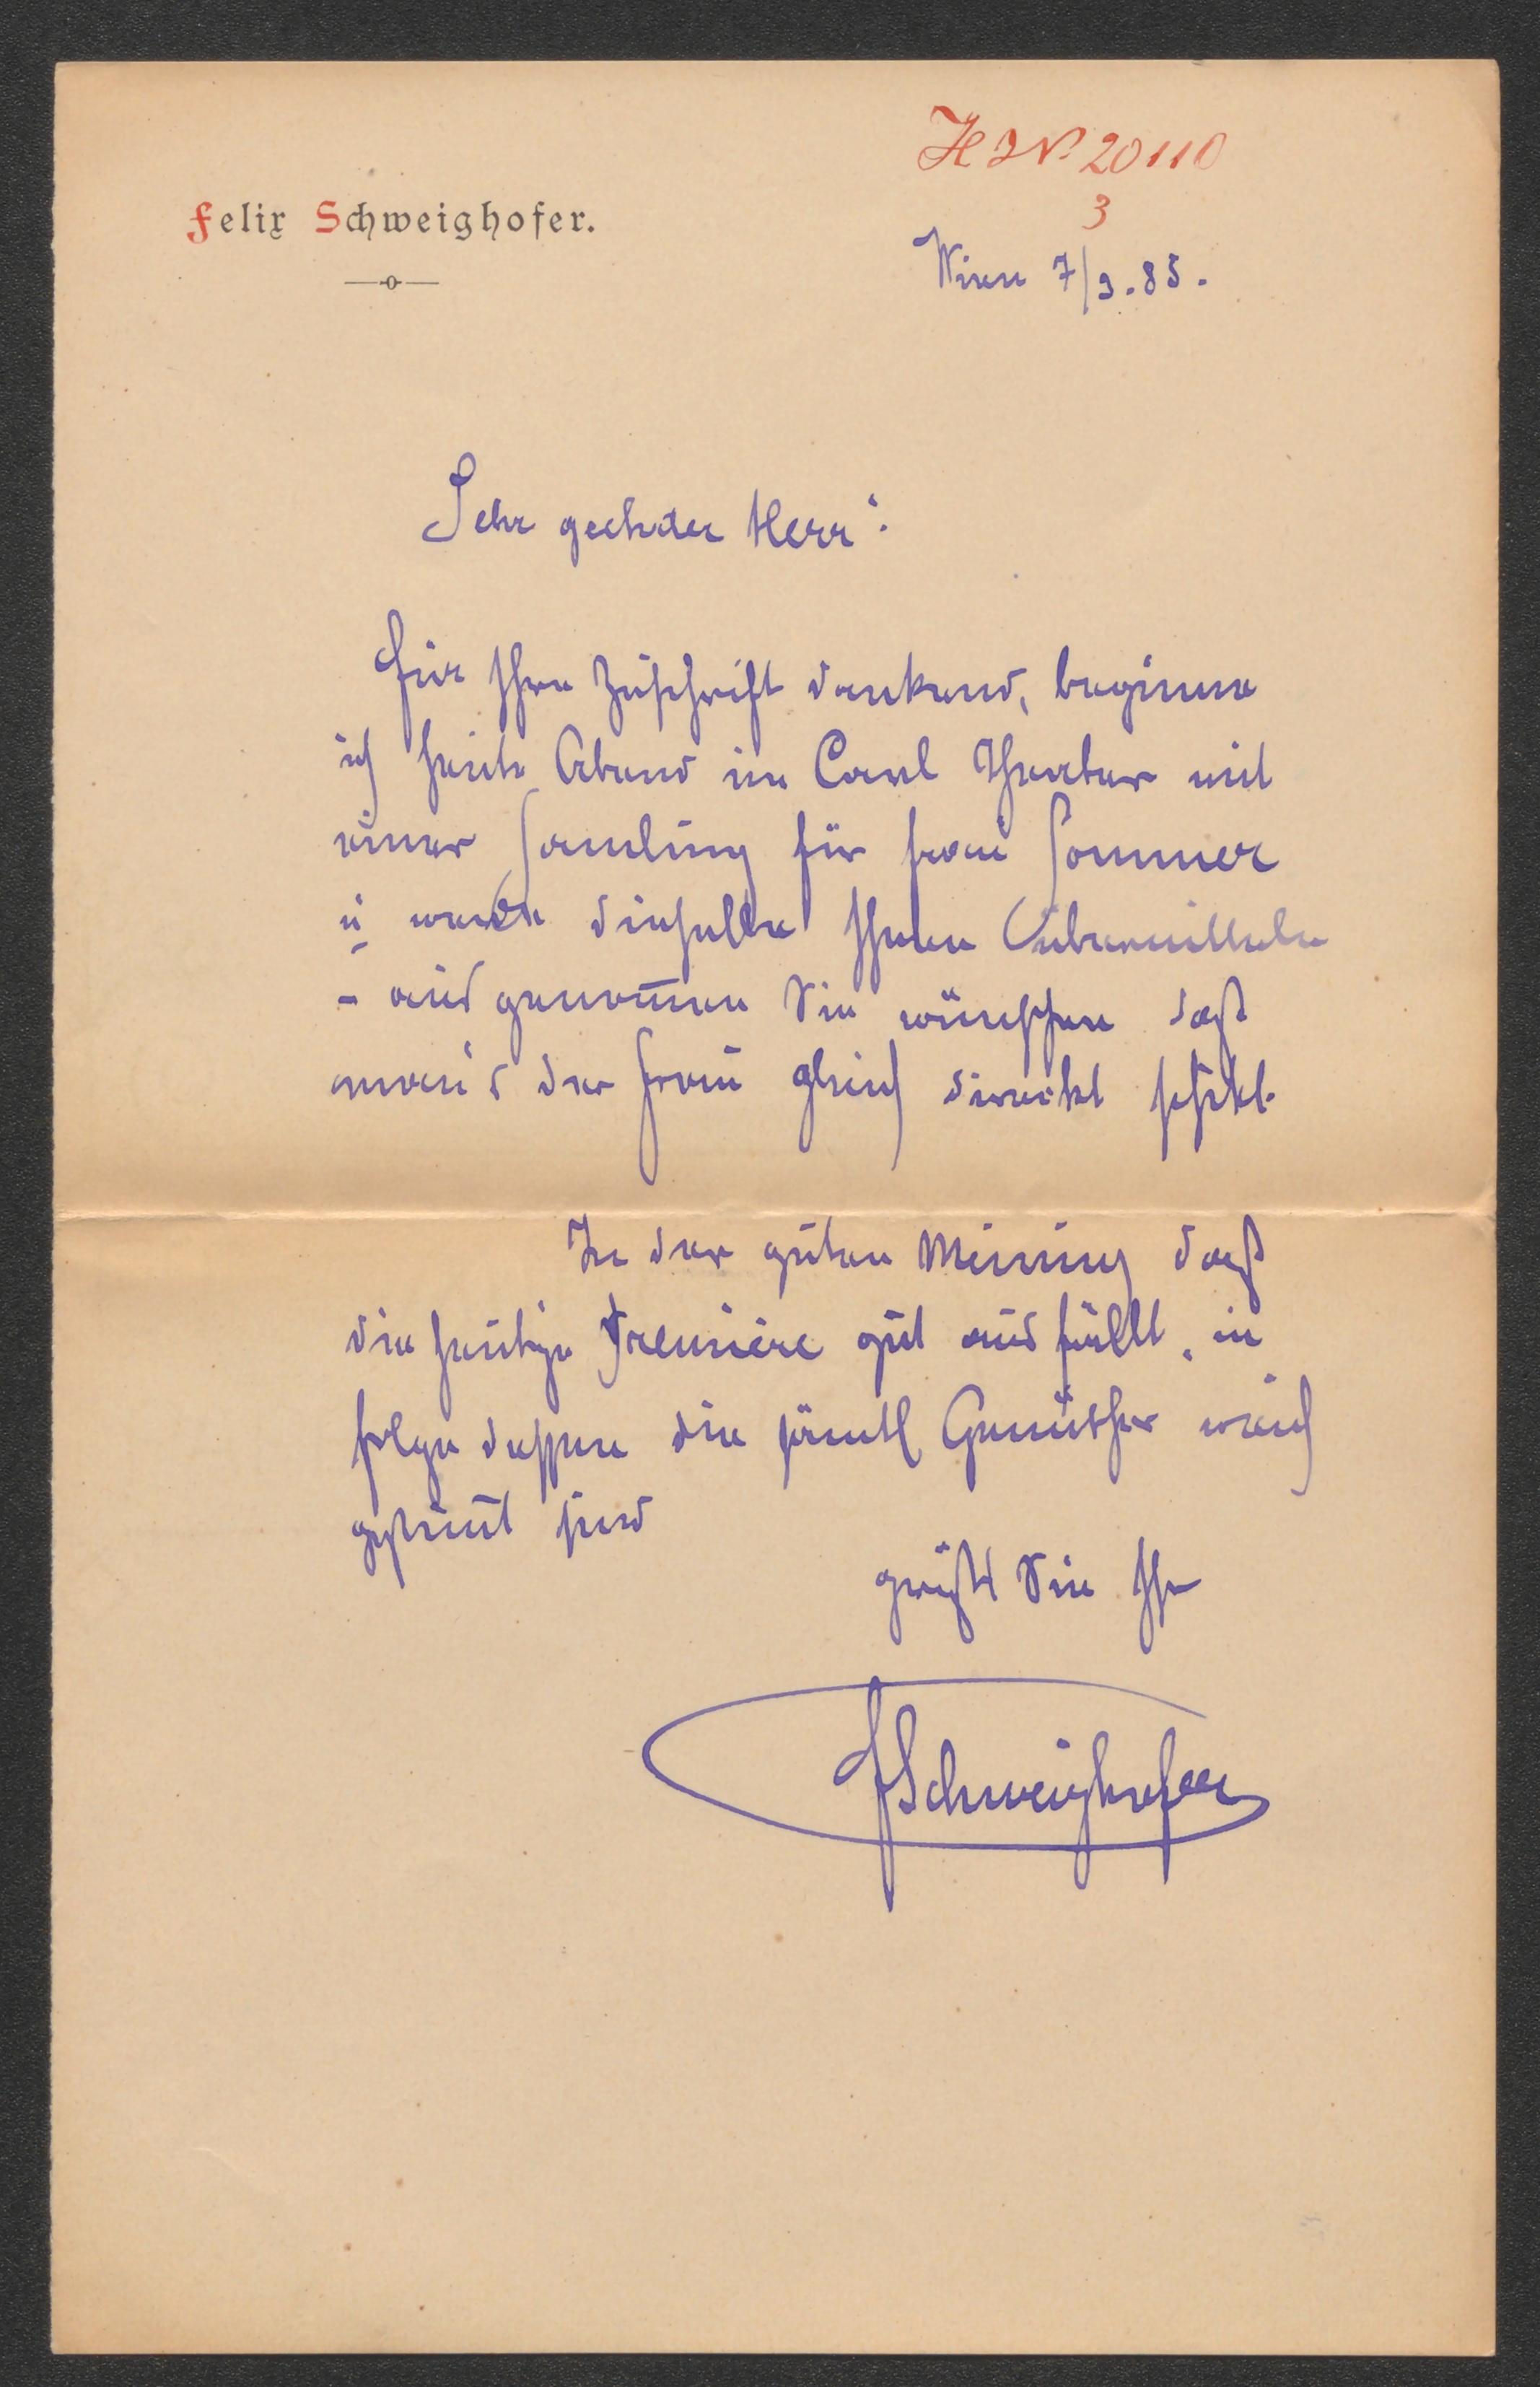 H.I.N. 20110
3
Felix Schweighofer.
Wien 7/9.85.
Sehr geehrter Herr!
Für Ihre Zuschrift dankend, beginne
ich heute Abend im Carl Theater mit
einer Samlung für frau Sommer
u werde dieselbe Ihnen übermitteln
- aus genom̅en Sie wünschen daß
man's der Frau gleich direckt schikt.
In der guten Meinung daß
die heutige Premiére gut aus fällt, in
folge dessen die sämtl Gemüther weich
gestim̅t sind
grüßt Sie Ihr
FSchweighofer